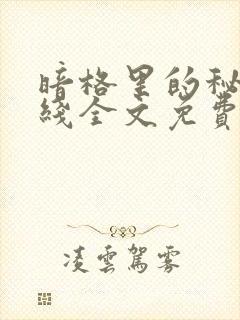 暗格里的秘
綫全文免費
凌雲駕霧